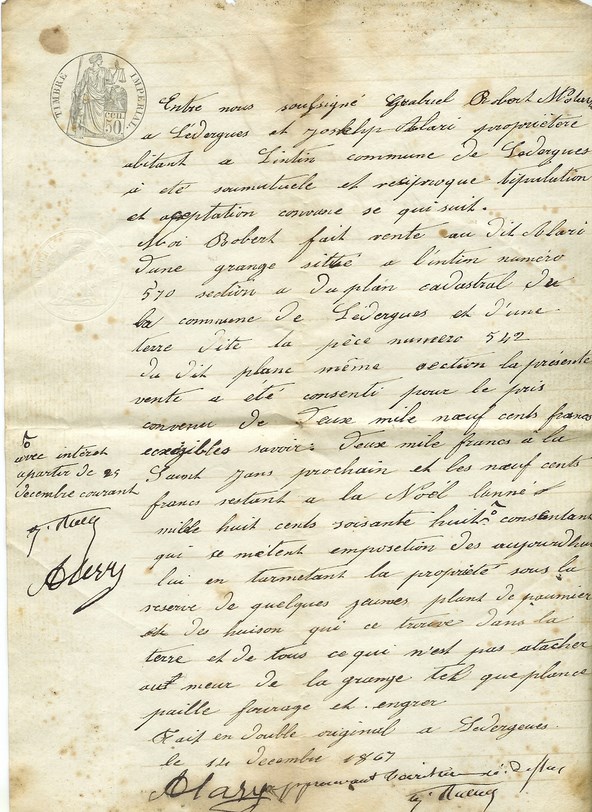 TIMBRE IMPERIAL.
50
Entre nous soussigné Grabriel Robert
a Ledergues et Joseph Alari propriétere
abitant a Lintin commune de Ledergues
a été soumutuele et reciproque tipulation
et aceptation convenue se qui suit.
Moi Robert fait vente au dit Alari
d'une grange sittué a l'intin numéro
570 section a du plan cadastral du
la commune de Ledergues et d'une
terre dite la pèce numero 542
du dit planc même section la présente
vente a été consenti pour le pris
convenu de Deux mile nœuf cents francs
exigibles savoir: deux mile francs a la
Saint Jans prochain et les nœuf cents
francs restant a la Noël lanné
mille huit cents soisante huit consentant
qui se metent emposetion des aujourdhui
lui en turmetant la propriété sous la
reserve de quelques jeunes plant de paumier
et des buison qui ce trouve dans la
terre et de tous ce qui n'est pas atacher
aux meur de la grange tel que plance
paille fourage et engrer
Fait en double original a Ledergues
le 14 decembre 1867
avec intéret
apartir de 25
decembre courant
Alary
Alary approuvant